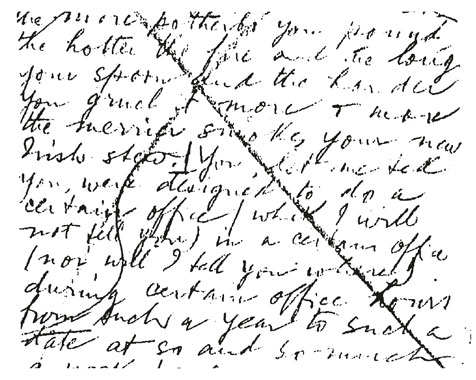 the more potherbs you pound
the hotter the fire and the long
your spoon and the harder
you gruel & more & more
the merrier smokes your new
Irish stew. | You let me tell
you, were designed to do a
certain office (which I will
not tell you) in a certain office
(nor will I tell you where)
during certain office hours
from such a year to such a
state at so and so much
a week